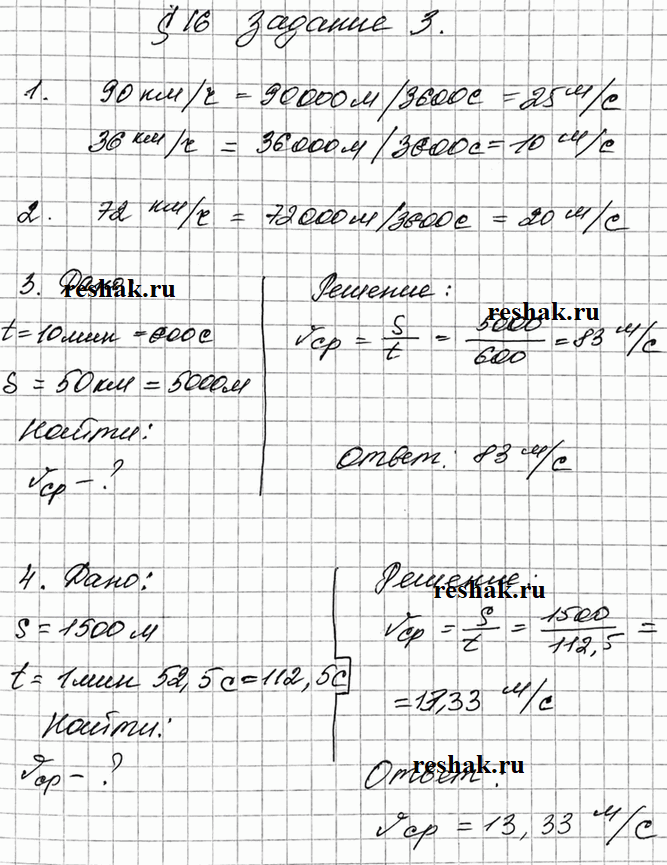 § 16 Задание 3.
1. 90 км/ч = 90000м/3600с = 25 м/с
36 км/ч = 36000м/3600с = 10 м/с
2. 72 км/ч = 72000м/3600с = 20 м/с
3. Дано
reshak.ru
t = 10 мин = 600с
S = 50 км = 5000м
Найти:
Vср - ?
Решение:
reshak.ru
Vср = S/t = 5000/600 = 83 м/с
Ответ: 83 м/с
4. Дано:
S = 1500 м
t = 1 мин 52,5 с = 112,5с
Найти:
Vср - ?
Решение:
reshak.ru
Vср = S/t = 1500/112,5 =
= 13,33 м/с
reshak.ru
Ответ:
Vср = 13,33 м/с